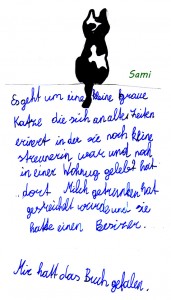 Sami
Es geht um eine kleine graue
Katze die sich an alte Zeiten
erinert in der sie noch keine
streunerin war und noch
in einer Wohnug gelebt hat
dort Milch getrunken hat
gestreichelt wurde und sie
hatte einen Besizer.
Mir hatt das Buch gefalen.